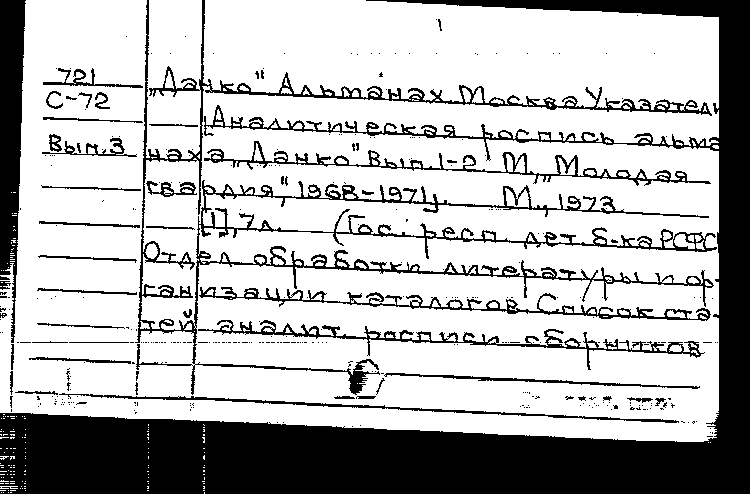 1
721 „Данко" Альманах. Москва. Указатели
С-72 [Аналитическая роспись альма
Вып.3 наха „Данко" Вып. 1-2. М., „Молодая
гвардия", 1968-1971]. М., 1973.
[1], 7 л. (Гос. респ. дет. б-ка РСФСР
Отдел обработки литературы и ор-
ганизации каталогов. Список ста-
тей аналит. росписи сборников